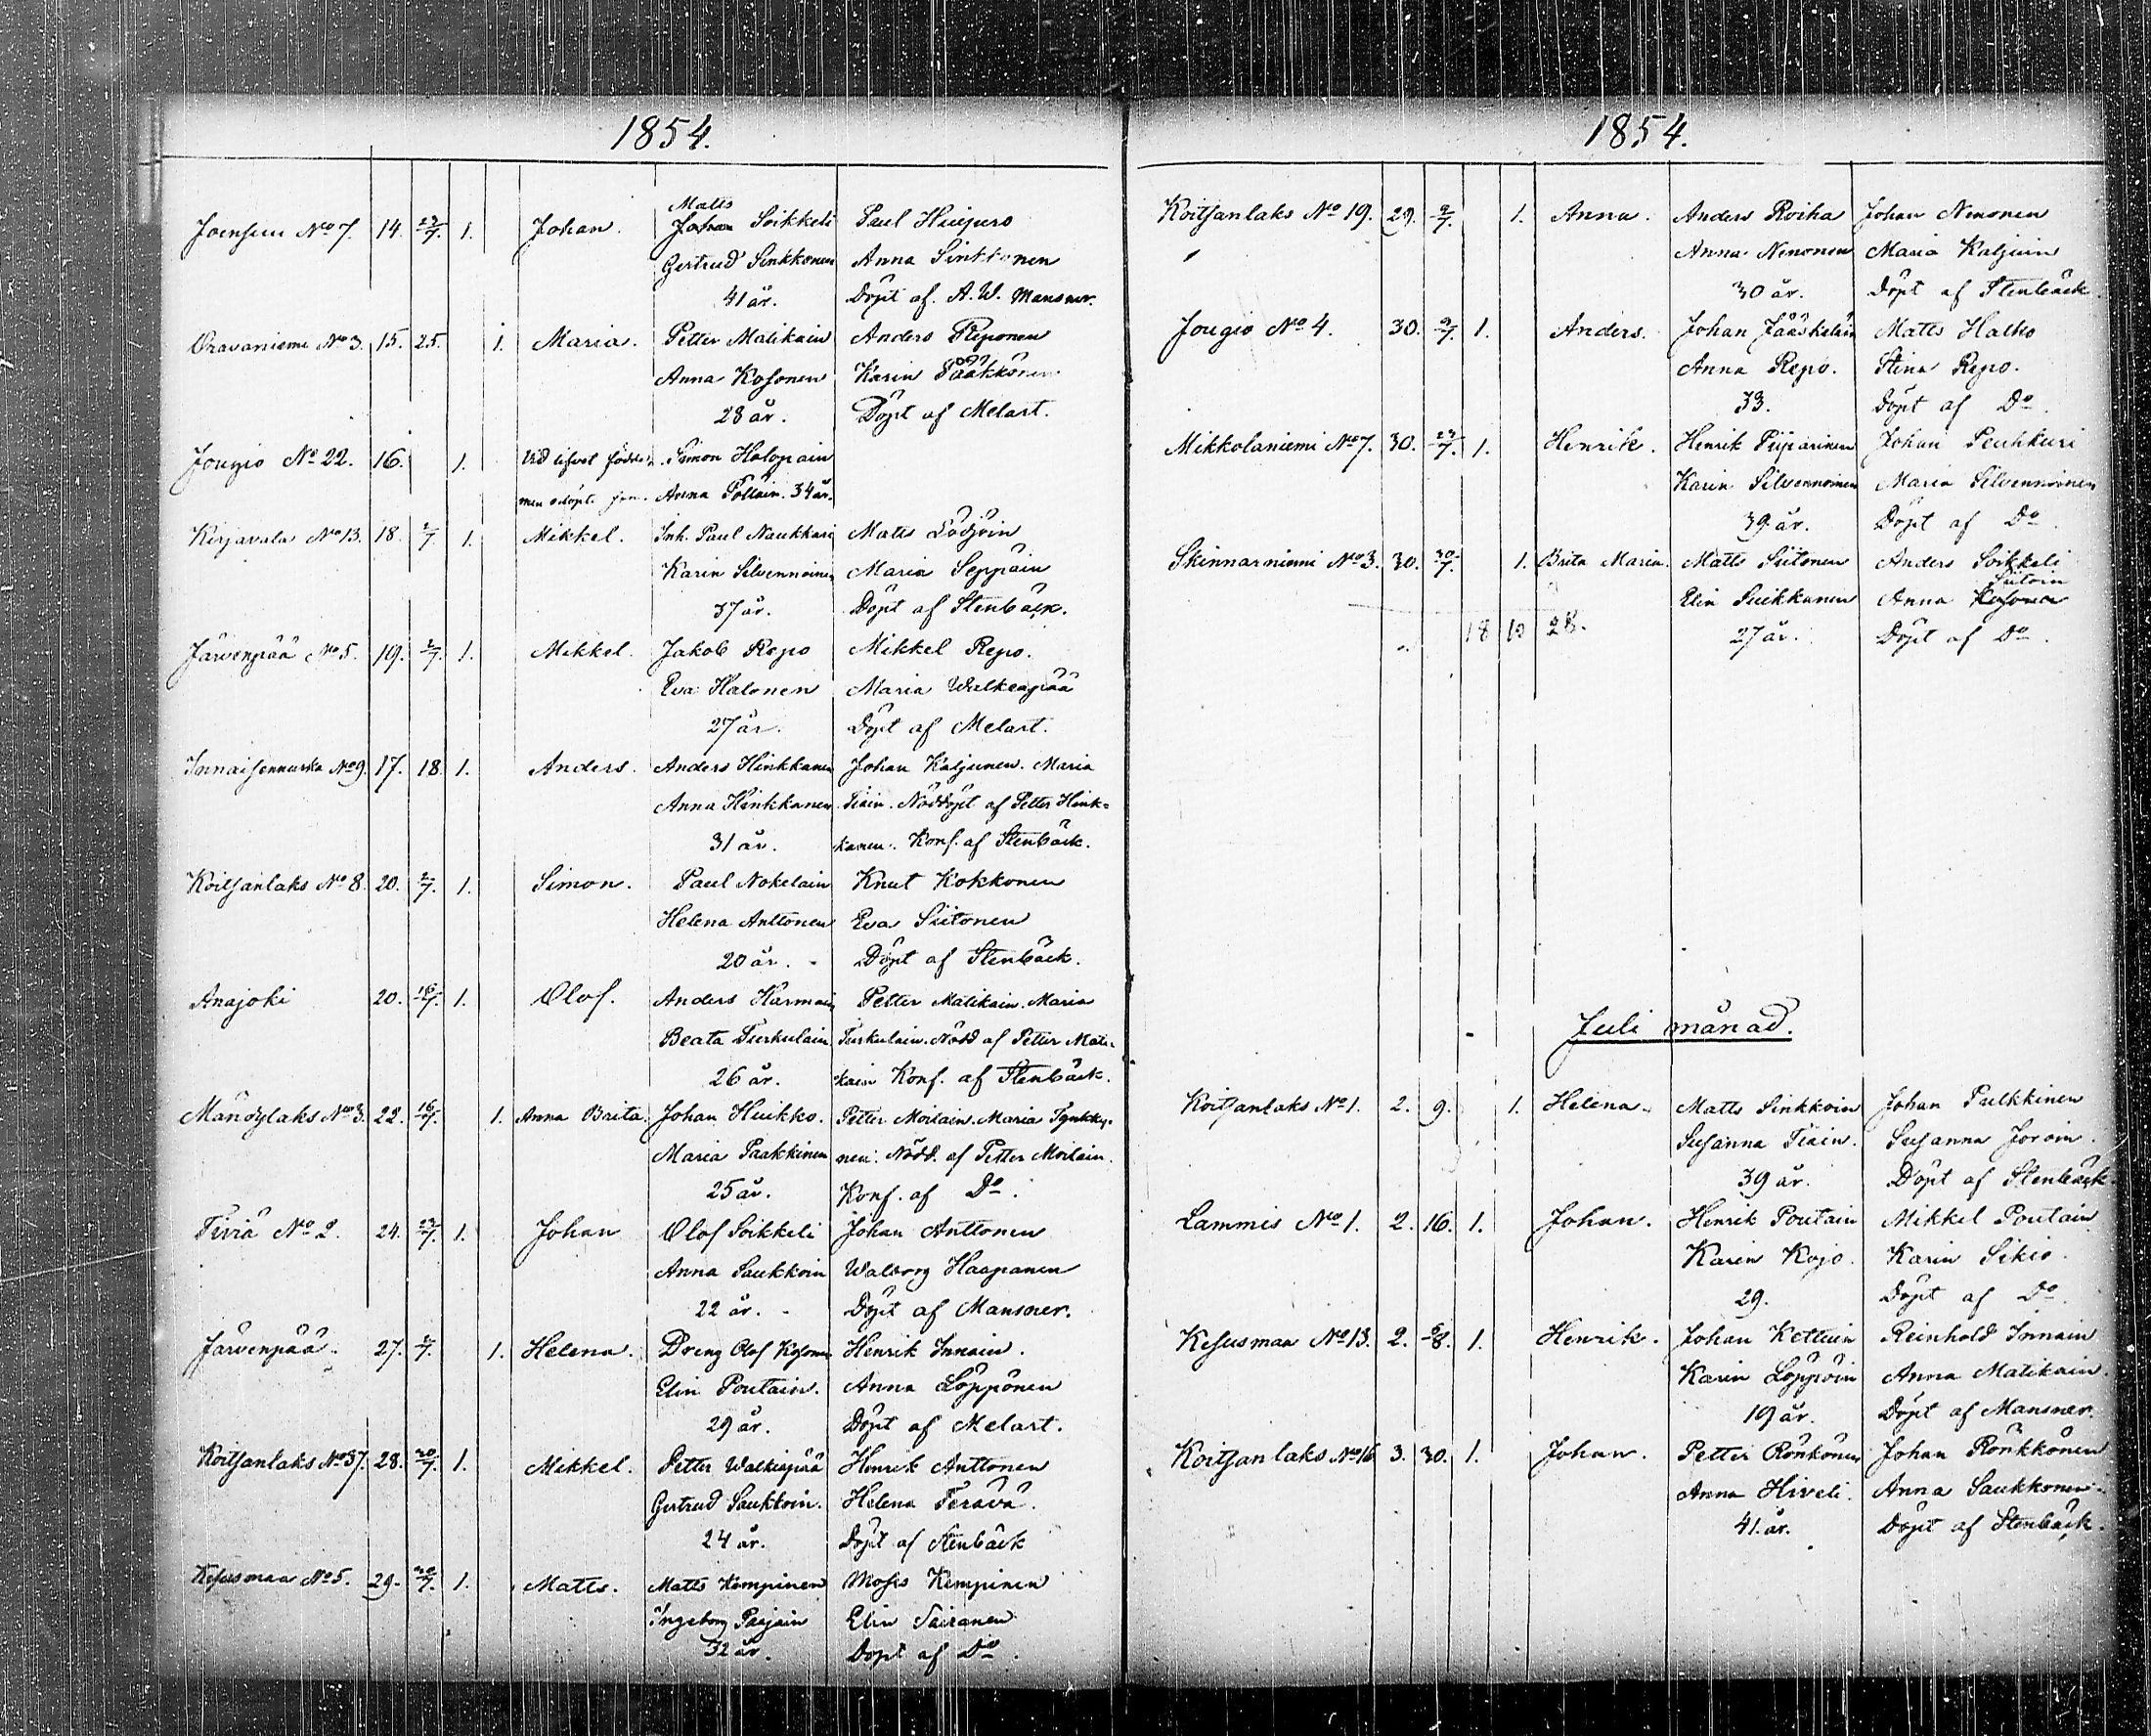 1854.
Joensuu No 7. 14. 23/7. 1. Johan. Matts Johan Soikkeli Paul
Gertrud Sinkkonen Anna Sinkkonen
41 år. Döpt af. A. W. Mansner.
Oravaniemi No 3. 15. 25. 1. Maria. Petter Matikain Anders Reponen
Anna Kosonen Karin Pääkkönen
28 år. Döpt af Melart.
Jougio No 22. 16. 1. Vid lifvet födde Simon Holopain
men odöpt Anna Pöllain. 34 år.
Kirjavala No 13. 18. 2/7. 1. Mikkel. Inh. Paul Naukkari Matts
Karin Silvennoinen Maria Seppäin
37 år. Döpt af Stenbäck.
Järvenpää No 5. 19. 2/7. 1. Mikkel. Jakob Repo Mikkel Repo.
Eva Halonen Maria Walkeapää
27 år. Döpt af Melart.
Innaisennurka No 9. 17. 18. 1. Anders. Anders Hinkkanen Johan Kaljunen. Maria
Anna Hinkkanen Tiain. Nöddöpt af Petter Hink=
31 år. kanen. Konf. af Stenbäck.
Koitsanlaks No 8. 20. 2/7. 1. Simon. Paul Nokelain Knut Kokkonen
Helena Anttonen Eva Siitonen
20 år. Döpt af Stenbäck.
Anajoki 20. 16/7. 1. Olof. Anders Harmain Petter Matikain. Maria
Beata Turkulain Turkulain. Nödd af Petter Mati-
26 år. kain Konf. af Stenbäck.
Mändylaks No 3. 22. 16/7. 1. Anna Brita. Johan Huikko. Petter Moilain. Maria Tynkky-
Maria Paakkinen nen. Nödd. af Petter Moilain.
25 år. Konf. af Do.
Tiviä No 2. 24. 23/7. 1. Johan Olof Soikkeli Johan Anttonen
Anna Saukkoin Walborg Haapanen
22 år. Döpt af Mansner.
Järvenpää. 27. 2/7. 1. Helena. Dreng Olof Kosonen Henrik Innain.
Elin Poutain. Anna Löppönen
29 år. Döpt af Melart.
Koitsanlaks No 37. 28. 20/7. 1. Mikkel. Petter Walkiapää Henrik Anttonen
Gertrud Saukkoin. Helena Terävä.
24 år. Döpt af Stenbäck
Kesusmaa No 5. 29. 20/7. 1. Matts. Matts Kempinen Moses Kempinen
Ingeborg Paajain Elin Sairanen
32 år. Döpt af Do.
1854.
Koitsanlaks No 19. 29. 2/7. 1. Anna. Anders Roiha Johan Nenonen
Anna Nenonen Maria Kaljuin
30 år. Döpt af Stenbäck.
Jougio No 4. 30. 9/7. 1. Anders. Johan Jääskeläin Matts Halko
Anna Repo. Stina Repo.
33. Döpt af Do.
Mikkolaniemi No 7. 30. 23/7. 1. Henrik. Henrik Piiparinen Johan Peuhkuri
Karin Silvennoinen Maria Silvennoinen
39 år. Döpt af Do.
Skinnarniemi No 3. 30. 30/7. 1. Brita Maria. Matts Siitonen Anders Soikkeli
Elin Suikkanen Anna Kosonen Siitoin
18 10 28. 27 år. Döpt af Do.
Juli månad.
Koitsanlaks No 1. 2. 9. 1. Helena. Matts Sinkkoin Johan Pulkkinen
Susanna Tiain. Susanna Joroin.
39 år. Döpt af Stenbäck.
Lammis No 1. 2. 16. 1. Johan. Henrik Poutain Mikkel Poutain
Karin Kojo. Karin Sikio.
29. Döpt af Do.
Kesusmaa No 13. 2. 6/8. 1. Henrik. Johan Kettuin Reinhold Innain
Karin Löppöin Anna Matikain.
19 år. Döpt af Mansner.
Koitsanlaks No 16. 3. 30. 1. Johan. Petter Rönkönen Johan Rönkkönen
Anna Hirveli. Anna Saukkonen.
41 år. Döpt af Stenbäck.